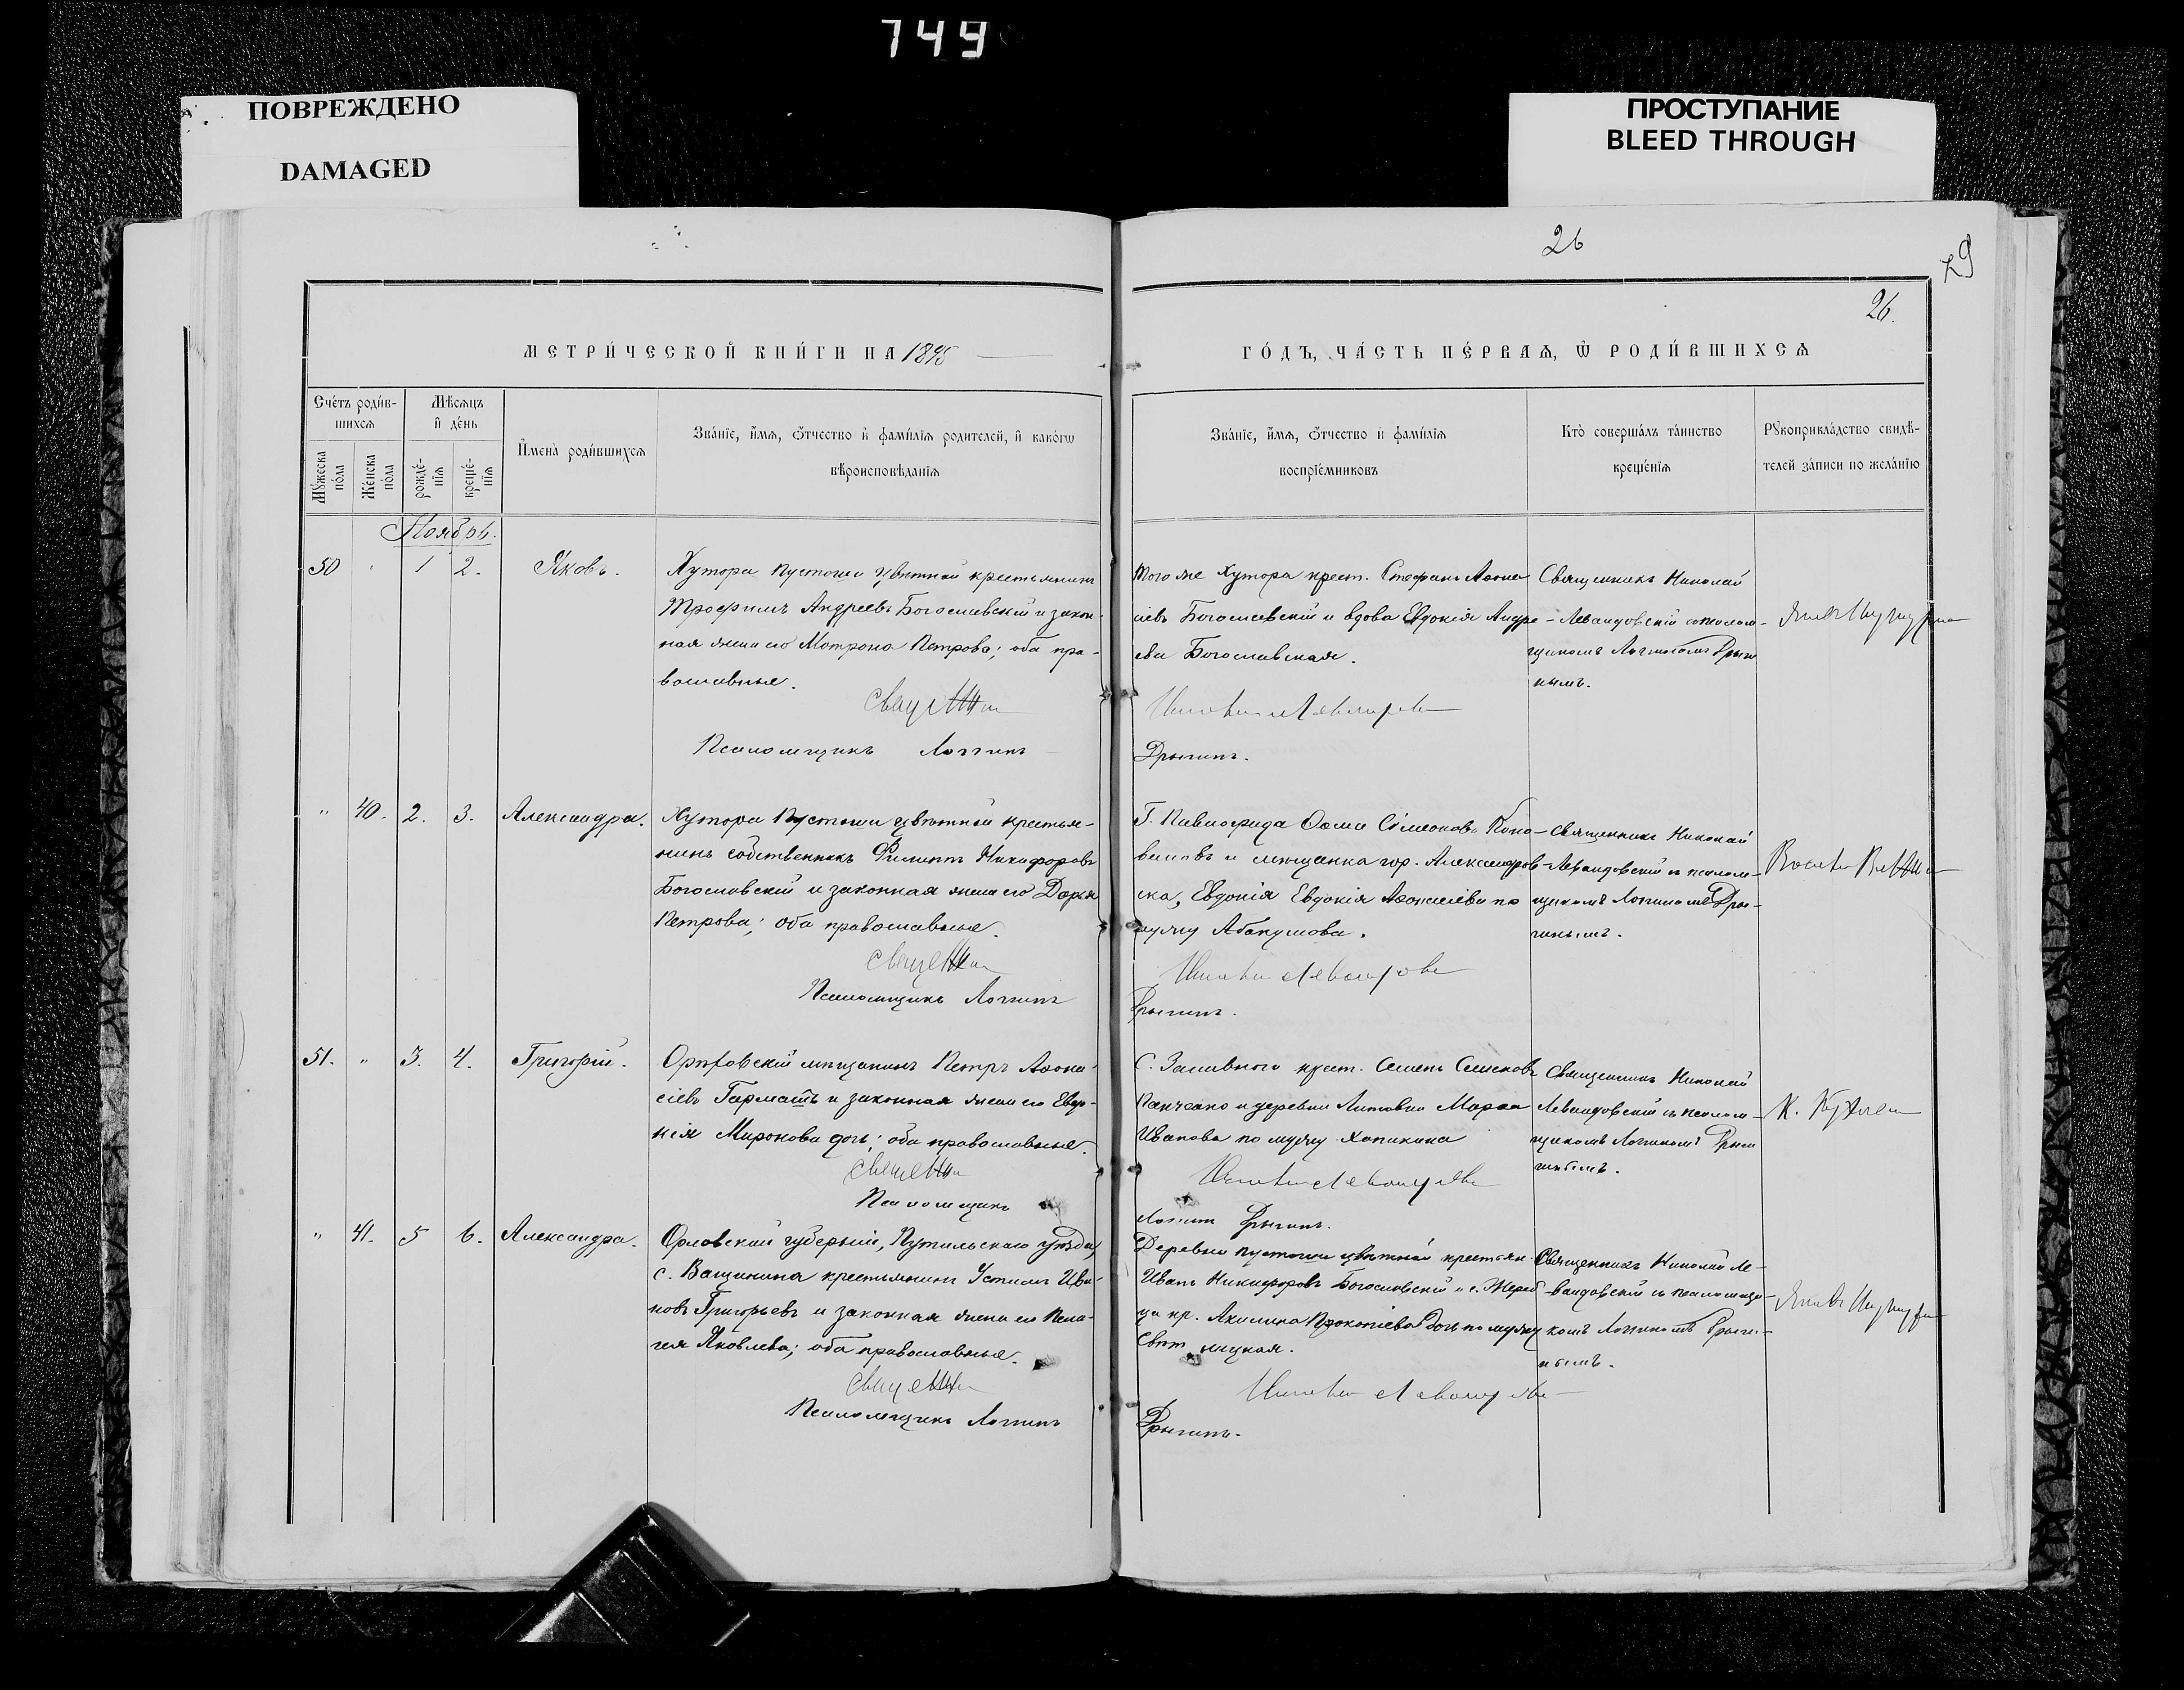 749
ПОВРЕЖДЕНО
DAMAGED
ПРОСТУПАНИЕ
BLEED THROUGH
26
79
26.
МЕТРИ́ЧЕСКОЙ КНИ́ГИ НА 1895
ГО́ДЪ, ЧА́СТЬ ПЕ́РВАѦ, Ѿ РОДИ́ВШИХСѦ
Сче́тъ роди́в-
шихсѧ
Мѣ́сѧцъ
и҆ де́нь
Мꙋ́жеска
по́ла
Же́нска
по́ла
рожде́-
нїѧ
креще́-
нїѧ
И҆мена̀ роди́вшихсѧ
Зва́нїе, и҆́мѧ, ѻ҆́тчество и҆ фами́лїѧ родителей, и҆ како́гѡ
вѣроисповѣ́данїѧ
Зва́нїе, и҆́мѧ, ѻ҆́тчество и҆ фами́лїѧ
воспрїе́мниковъ
Кто̀ соверша́лъ та́инство
креще́нїѧ
Рꙋкоприкла́дство свидѣ́-
телей за́писи по жела́нїю
Ноябрь.
50 " 1 2. Яковъ.
Хутора Пустоши цвѣтной крестьянинъ
Трофимъ Андреевъ Богославскій и закон-
ная жена его Мотрона Петрова; оба пра-
вославные.
Псаломщикъ Логгинъ
Того же Хутора крест. Стефанъ Аѳана
сіевъ Богославскій и вдова Евдокія Андре-
ева Богославская.
Дрыгинъ.
Священникъ Николай
Левандовскій съ псалом-
щикомъ Логгиномъ Дрыги
нымъ.
" 40. 2. 3. Александра.
Хутора Пустоши цвѣтной крестья-
нинъ собственникъ Филиппъ Никифоровъ
Богословскій и законная жена его Дарья
Петрова; оба православные.
Псаломщикъ Логгинъ
Г. Павлограда Ѳома Симеоновъ Коно-
валовъ и мещанка гор. Александров-
ска, Евдокія Евдокія Аѳанасіева по
мужу Абакумова.
Дрыгинъ.
Священникъ Николай
Левандовскій съ псалом-
щикомъ Логгиномъ Дры-
гинымъ.
51. " 3. 4. Григорій.
Орѣховскій мѣщанинъ Петръ Аѳана-
сіевъ Гарматъ и законная жена его Евдо-
кія Миронова дочь; оба православные.
Псаломщикъ
С. Заливного крест. Семенъ Семеновъ
Панченко и деревни Литовки Марѳа
Иванова по мужу Хапикина
Логгинъ Дрыгинъ.
Священникъ Николай
Левандовскій съ псалом-
щикомъ Логгиномъ Дрыги
нымъ.
" 41. 5 6. Александра.
Орловской губерніи, Путильскаго уѣзда,
с. Ващинина крестьянинъ Устимъ Ива-
новъ Григорьевъ и законная жена его Пела-
гея Яковлева; оба православные.
Псаломщикъ Логгинъ
Деревни Пустоши цвѣтной крестьян.
Иванъ Никифоровъ Богословскій и с. Жереб-
ца кр. Акилина Прокопіева дочь по мужу
Свѣтлицкая.
Дрыгинъ.
Священникъ Николай Ле-
вандовскій съ псаломщи-
комъ Логгиномъ Дрыги-
нымъ.